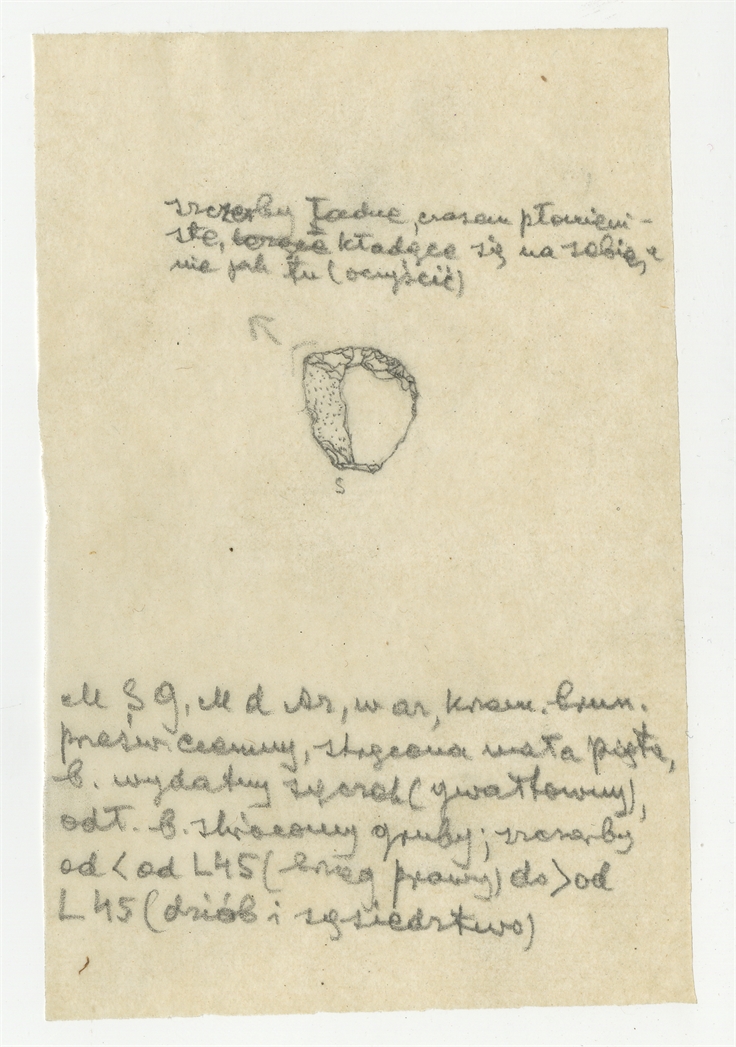 szczerby ładne, czasem płomieni-
ste, kładące się na sobie, a
nie jak tu (oczyścić)
S
M Ś g, M d Ar, w ar, krzem. brun.
prześw. ciemny, strącona mała piętka,
b. wydatny sęczek (gwałtowny),
odł. b. skrócony gruby; szczerby
od < od L45 (brzeg prawy) do > od
L45 (dziób i sąsiedztwo)